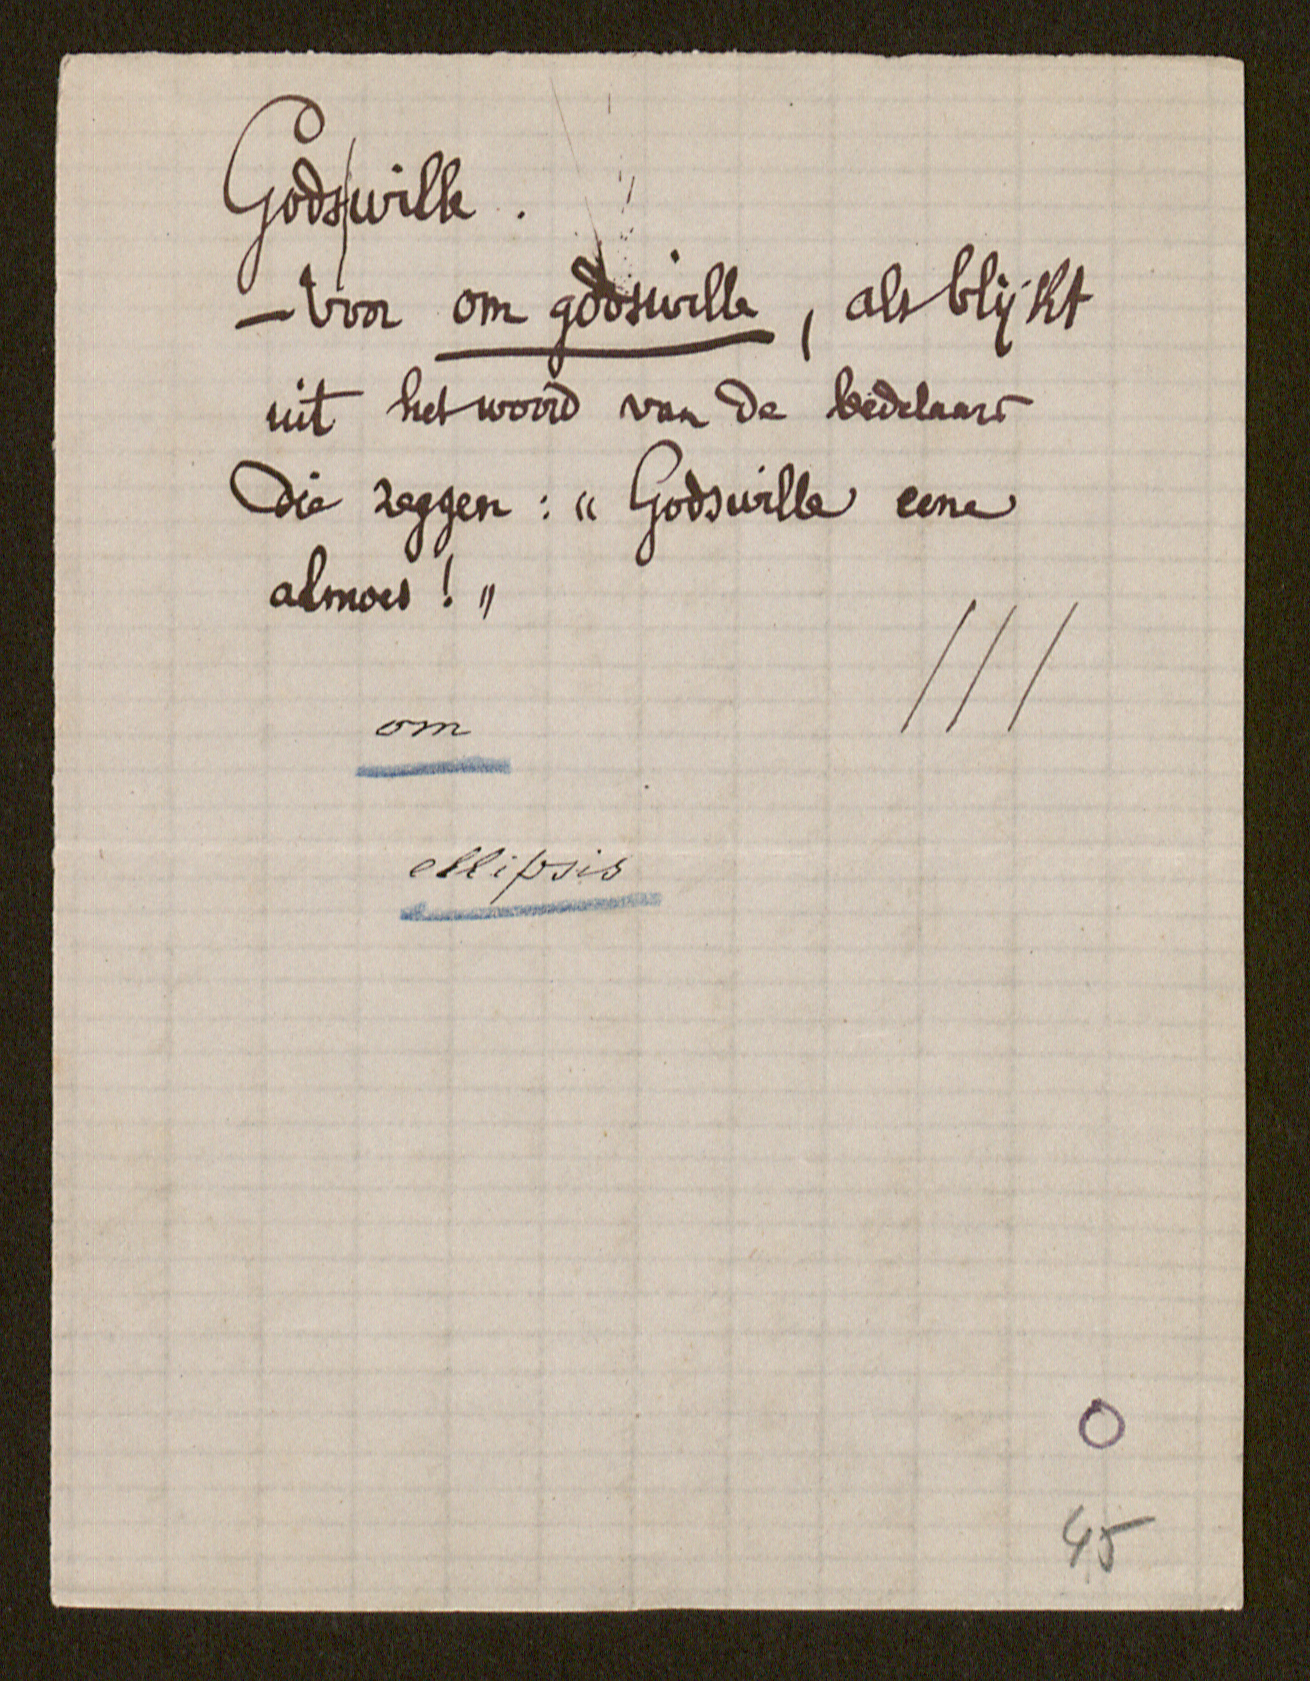 Gods|wille.
— Voor om godswille, als blijkt
uit het woord van de bedelaars
Die zeggen: “ Godswille eene
almoes! ”
///
om
ellipsis
O
45